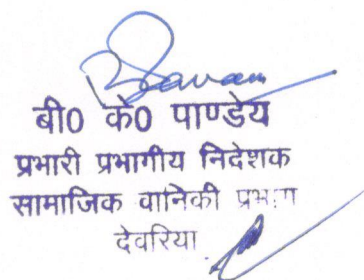 बी0 के0 पाण्डेय
प्रभारी प्रभागीय निदेशक
सामाजिक वानिकी प्रभाग
देवरिया